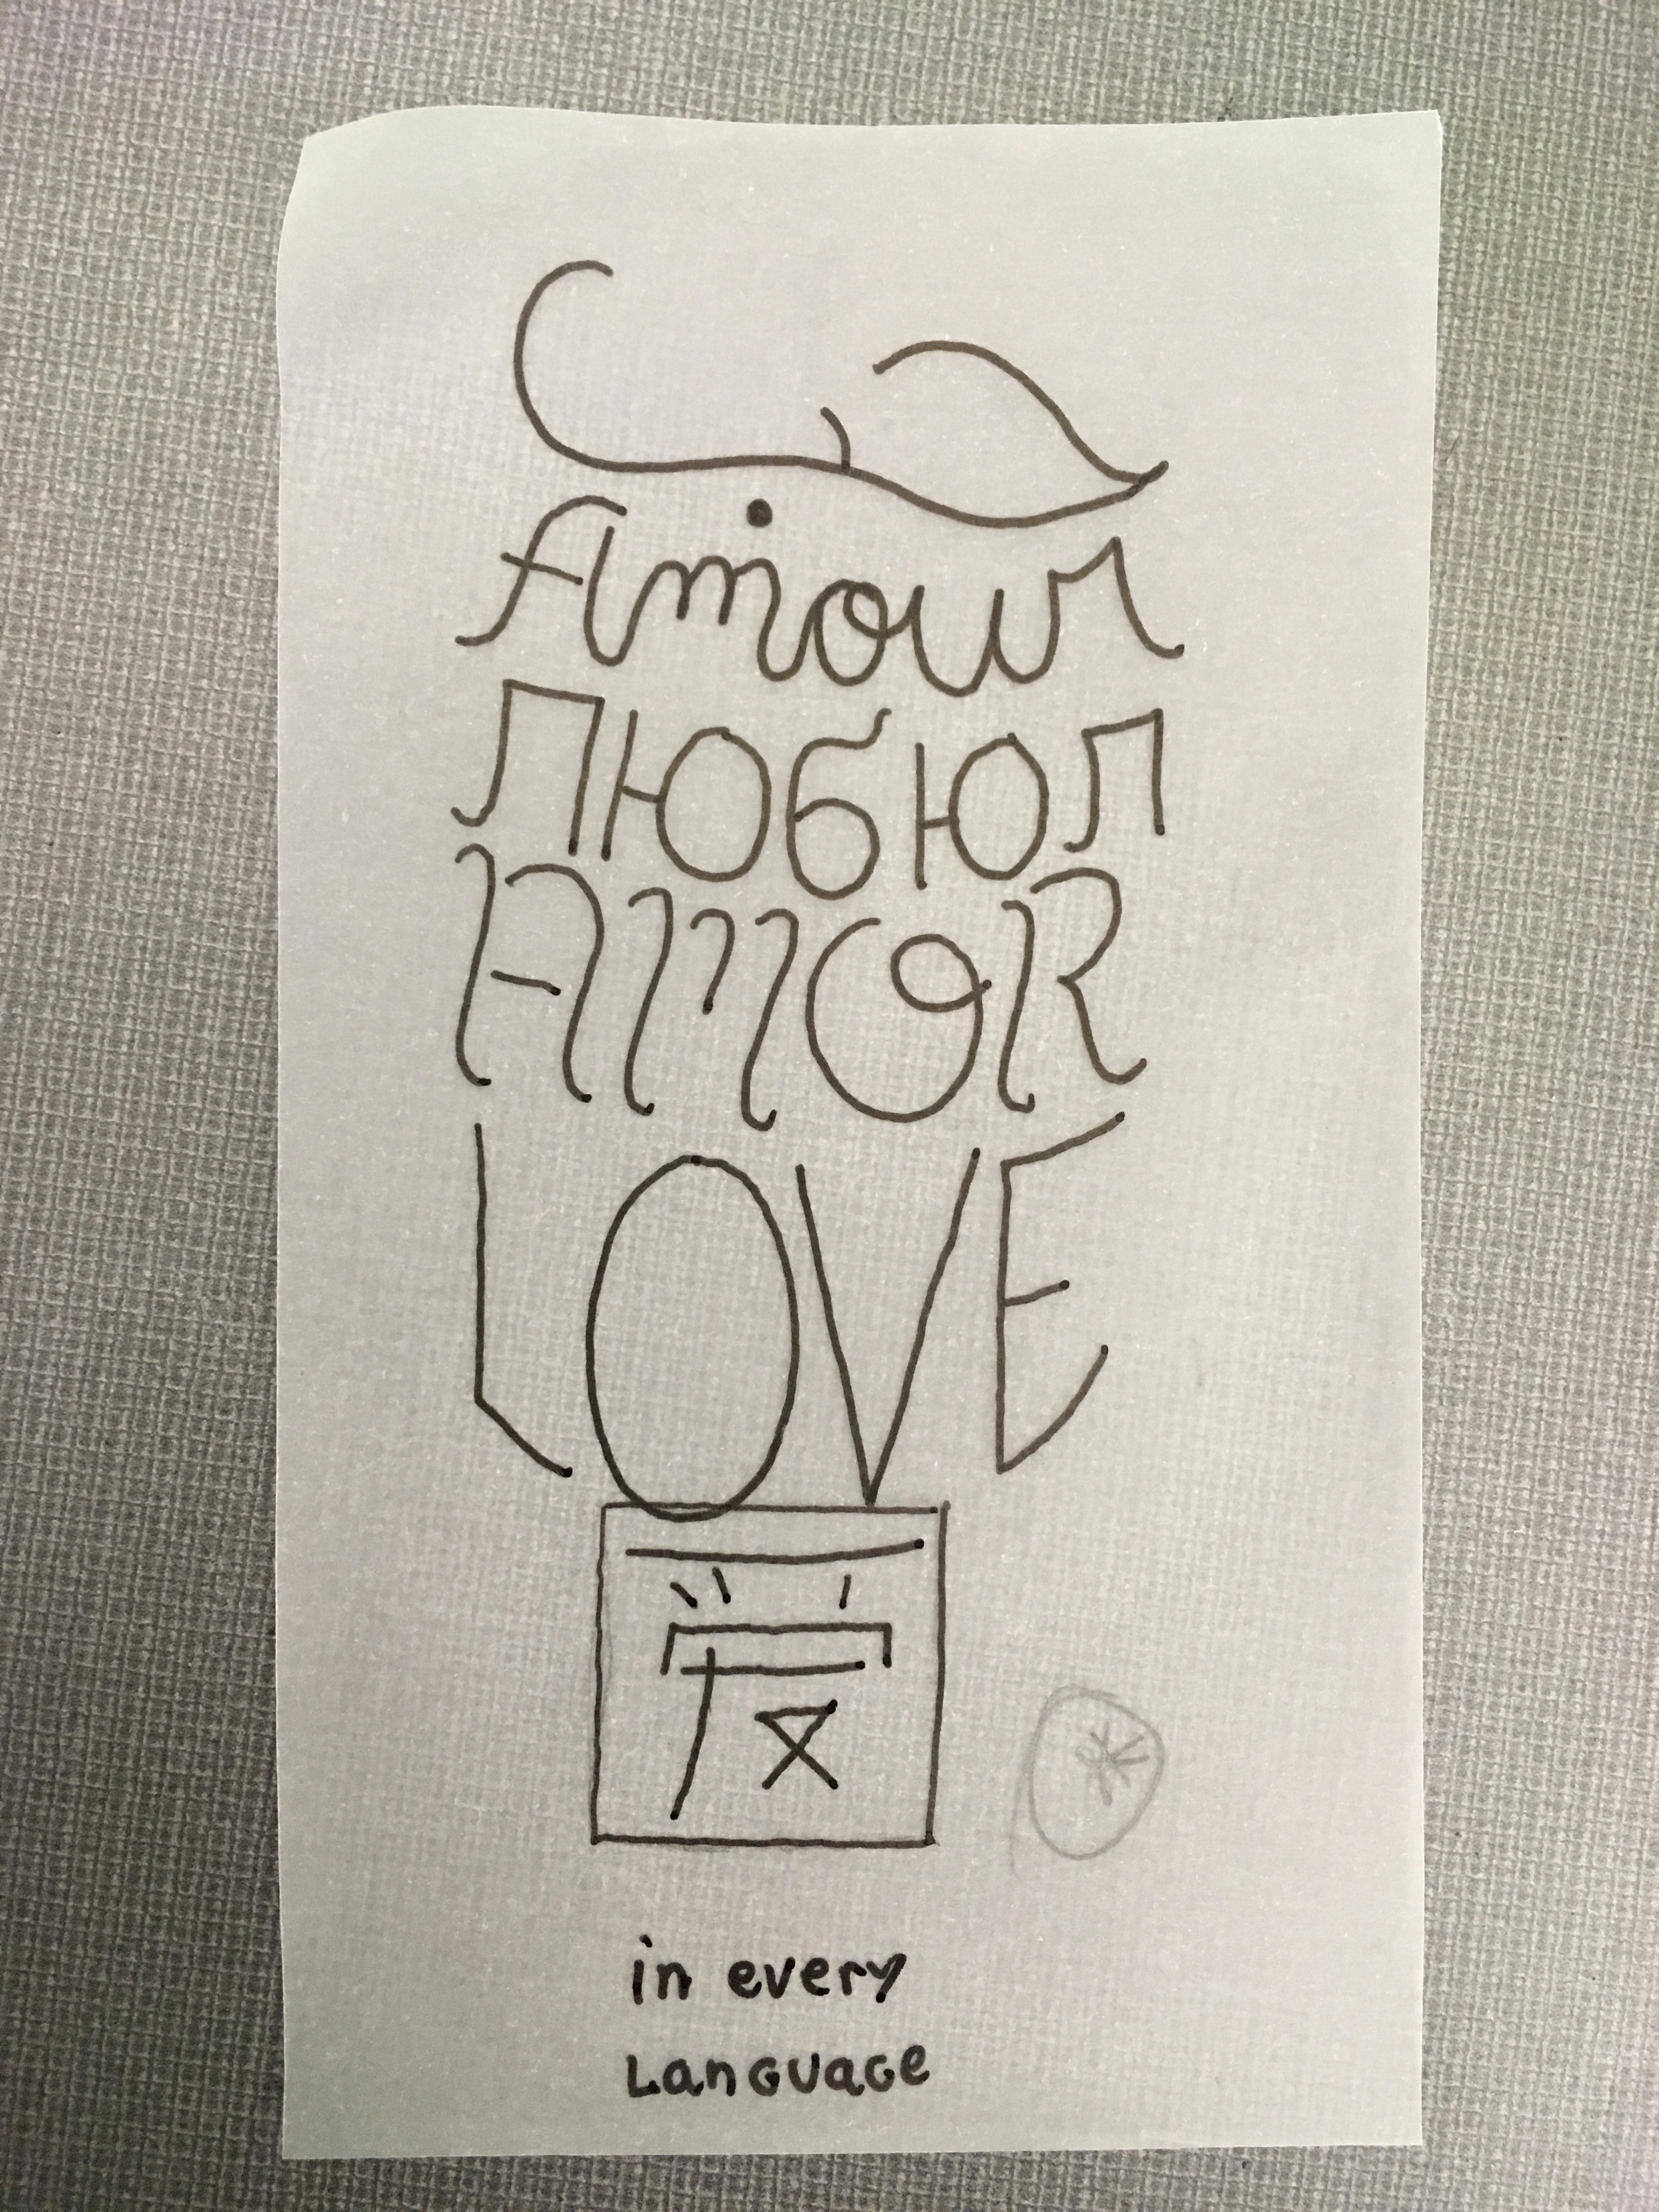 حب
Amour
ЛЮбЮЛ
AMOR
LOVE
爱
in every
Language